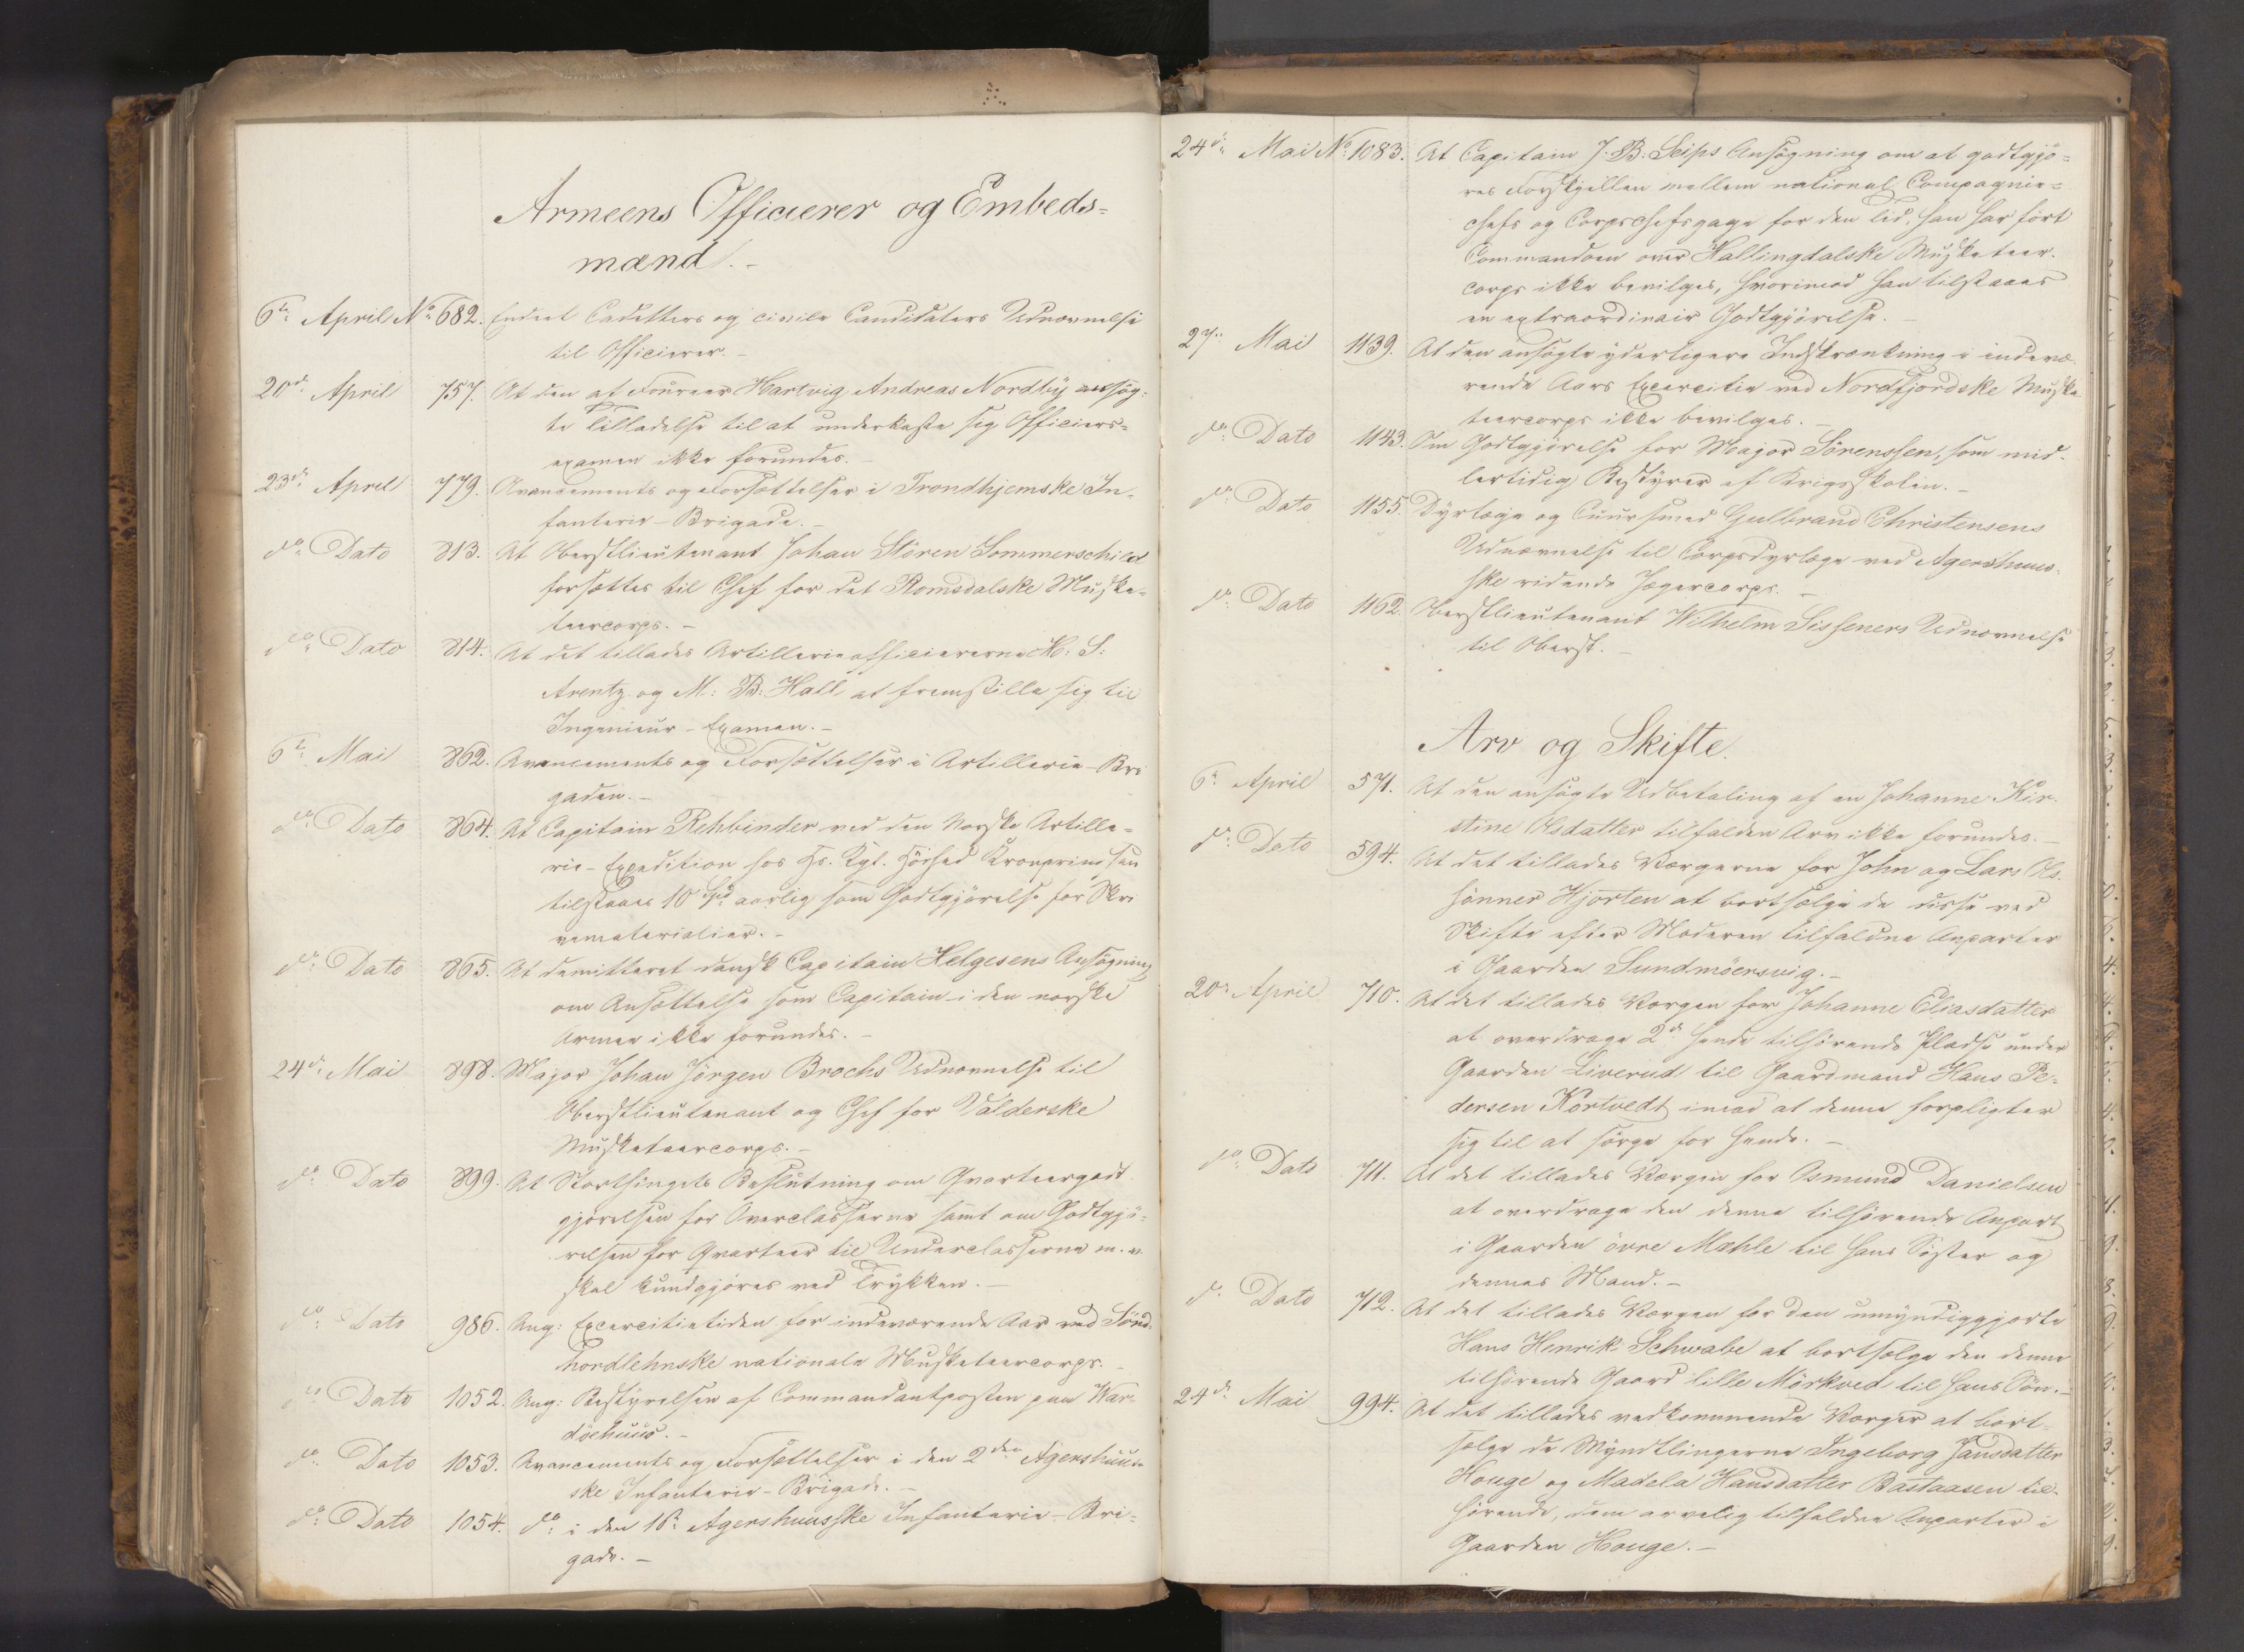 Armeens Officierer og Embeds=
mænd.-
6te April No 682. Endeel Cadetters og civile Candidaters Udnævnelse
til Officierer.-
20de April 757. At den af Foureer Hartvig Andreas Nordby ansøg-
te Tilladelse til at underkaste sig Officiers=
examen ikke forundes.-
23de April 779. Avancements og Forsættelser i Trondhjemske In-
fanterie-Brigade.-
do Dato 813. At Oberstlieutenant Johan Stören Sommerschild
forsættes til Chef for det Romsdalske Muske-
teercorps.-
do Dato 814. At det tillades Artillerieofficiererne H: S:
Arentz og M: B: Hall at fremstille sig til
Ingenieur-Examen.-
6te Mai 862. Avancements og Forsættelser i Artillerie-Bri
gaden.-
do Dato 864. At Capitain Rehbinder ved den Norske Artille=
rie-Expedition hos Hs. Kgl. Höihed Kronprindsen
tilstaaes 10 Spd aarlig som Godtgjörelse for Skri
vematerialier.-
do Dato 865. At demitteret dansk Capitain Helgesens Ansögning
om Ansættelse som Capitain i den norske
Armee ikke forundes.-
24de Mai 898. Major Johan Jörgen Brochs Udnævnelse til
Oberstlieutenant og Chef for Valderske
Musketeercorps.-
do Dato 899. At Storthingets Beslutning om Qvarteergodt
gjörelsen for Overclasserne samt om Godtgjö-
relsen for Qvarteer til Underclasserne m.v.
skal kundgjöres ved Trykken.-
do Dato 986. Ang: Excercitietiden for indeværende Aar ved Sönd-
hordlehnske nationale Musketeercorps.-
do Dato 1052. Ang: Bestyrelsen af Commandantposten paa War-
döehuus.-
do Dato 1053. Avancements og Forsættelser i den 2den Agershuus
ske Infanterie-Brigade.-
do Dato 1054. do i den 1ste Agershuusske Infanterie-Bri-
gade.-
24de Mai No 1083. At Capitain J. B. Seips Ansögning om at godtgjö=
res Forskjellen mellem national Compagnie=
chefs og Corpschefsgage for den Tid, han har fört
Commandoen over Hallingdalske Musketeer-
corps ikke bevilges, hvorimod han tilstaaes
en extraordinair Godtgjörelse.-
27de Mai 1139. At den ansögte yderligere Indskrænkning i indevæ-
rende Aars Excercitie ved Nordfjordske Muske
teercorps ikke bevilges.-
do Dato 1143. Om Godtgjörelse for Major Sörenssen, som mid-
lertidig Bestyrer af Krigsskolen.-
do Dato 1155. Dyrlæge og Cuursmed Gulbrand Christensens
Udnævnelse til Corpsdyrlæge ved Agershuus-
ske ridende Jægercorps.-
do Dato 1162. Oberstlieutenant Wilhelm Sisseners Udnævnelse
til Oberst.-
Arv og Skifte.
6te April 571. At den ansögte Udbetaling af en Johanne Kir-
stine Olsdatter tilfalden Arv ikke forundes.-
do Dato 594. At det tillades Værgerne for John og Lars Ols-
sönner Hjorten at bortsælge de disse ved
Skifte efter Moderen tilfaldne Anparter
i Gaarden Sundmöersvig.-
20de April 710. At det tillades Værgen for Johanne Eliasdatter
at overdrage 2de hende tilhörende Pladse under
Gaarden Liverud til Gaardmand Hans Pe-
dersen Kortvedt imod at denne forpligter
sig til at sörge for hende.-
do Dato 711. At det tillades Værgen for Osmund Danielsen
at overdrage den denne tilhörende Anpart
i Gaarden övre Mæhle til hans Söster og
dennes Mand.-
do Dato 712. At det tillades Værgen for den umyndiggjorte
Hans Henrik Schwabe at bortsælge den denne
tilhörende Gaard lille Mörkved til hans Sön.-
24de Mai 994. At det tillades vedkommende Værger at bort-
sælge de Myndtlingerne Ingeborg Hansdatter
Houge og Madela Hansdatter Bastaasen til-
hörende, dem arvelig tilfaldne Anparter i
Gaarden Houge.-